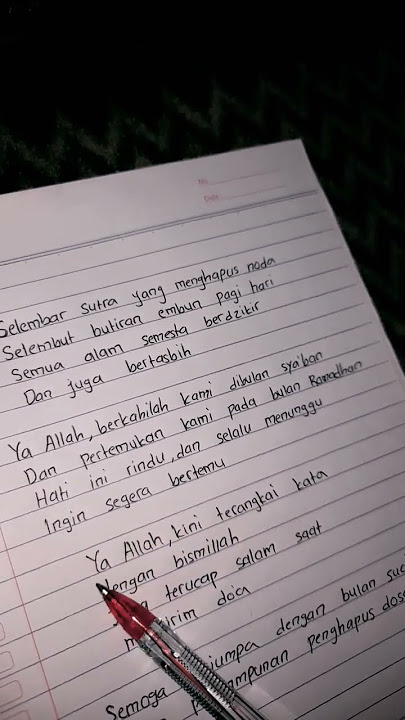 No
Date
Selembar sutra yang menghapus noda
Selembut butiran embun pagi hari
Semua alam semesta berdzikir
Dan juga bertasbih
Ya Allah, berkahilah kami dibulan sya'ban
Dan pertemukan kami pada bulan Ramadhan
Hati ini rindu, dan selalu menunggu
Ingin segera bertemu
Ya Allah, kini terangkai kata
dengan bismillah
terucap salam saat
doa
Semoga jumpa dengan bulan suci
penghapus dosa